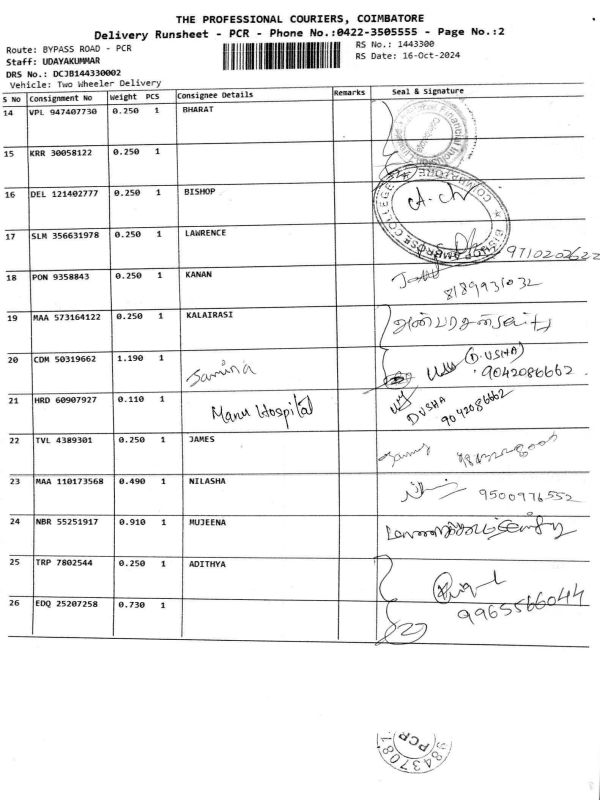 THE PROFESSIONAL COURIERS, COIMBATORE
Delivery Runsheet - PCR - Phone No.:0422-3505555 - Page No.:2
Route: BYPASS ROAD - PCR
RS No.: 1443300
Staff: UDAYAKUMAR
RS Date: 16-Oct-2024
DRS No.: DCJB144330002
Vehicle: Two Wheeler Delivery
S No Consignment No Weight PCS Consignee Details Remarks Seal & Signature
14 VPL 947407730 0.250 1 BHARAT
15 KRR 30058122 0.250 1
16 DEL 121402777 0.250 1 BISHOP
17 SLM 356631978 0.250 1 LAWRENCE 9710202622
18 PON 9358843 0.250 1 KANAN
8189931032
19 MAA 573164122 0.250 1 KALAIRASI
20 CDM 50319662 1.190 1 (D.USHA)
9042086662
21 HRD 60907927 0.110 1 Manu Hospital D USHA
9042086662
22 TVL 4389301 0.250 1 JAMES
23 MAA 110173568 0.490 1 NILASHA 9500976552
24 NBR 55251917 0.910 1 MUJEENA
25 TRP 7802544 0.250 1 ADITHYA
9965566044
26 EDQ 25207258 0.730 1
PCR